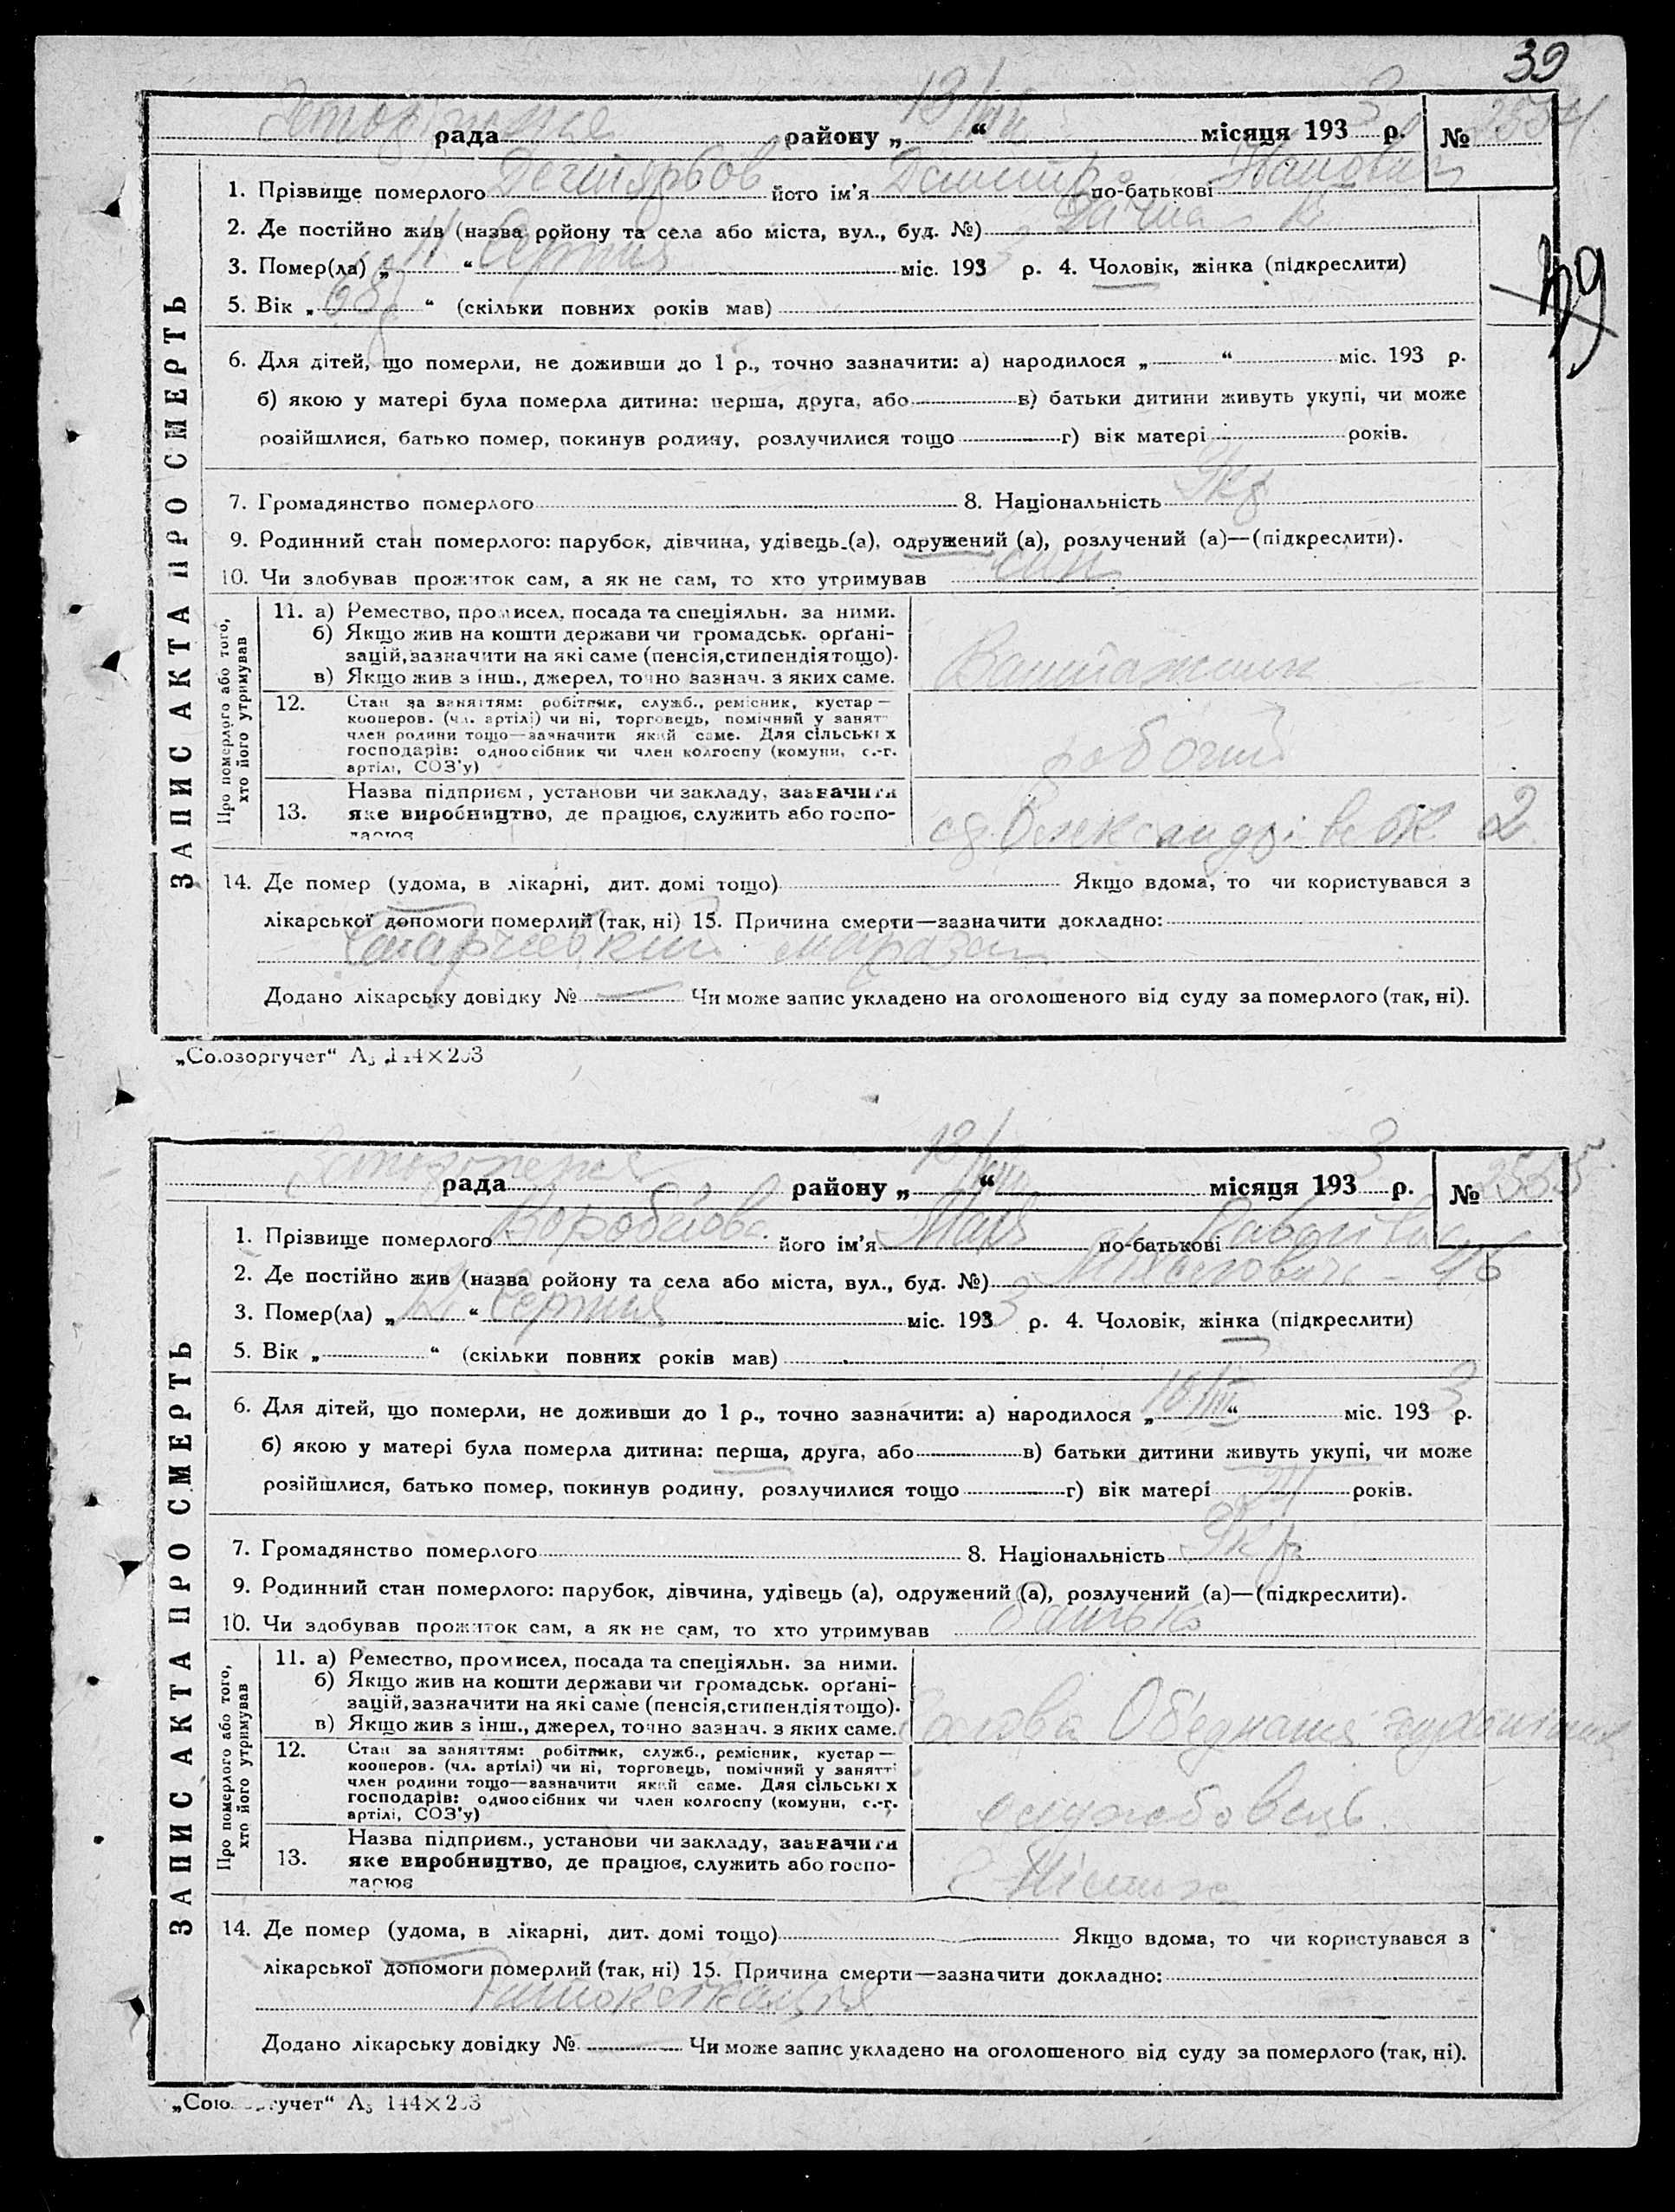 39
13/VIII 3
рада району „ “ місяця 193 р. № 2554
1. Прізвище померлого Дегтярьов його ім’я Дмитро по-батькові Іванович
2. Де постійно жив (назва ройону та села або міста, вул., буд. №) Дачна
3. Помер(ла) „ 11 “ Серпня міс. 193 3 р. 4. Чоловік, жінка (підкреслити)
39
5. Вік „ 68 “ (скільки повних років мав)
6. Для дітей, що померли, не доживши до 1 р., точно зазначити: а) народилося „ “ міс. 193 р.
б) якою у матері була померла дитина: перша, друга, або в) батьки дитини живуть укупі, чи може
розійшлися, батько помер, покинув родину, розлучилися тощо г) вік матері років.
7. Громадянство померлого 8. Національність Укр
9. Родинний стан померлого: парубок, дівчина, удівець (а), одружений (а), розлучений (а)—(підкреслити).
10. Чи здобував прожиток сам, а як не сам, то хто утримував син
ЗАПИС АКТА ПРО СМЕРТЬ
Про померлого або того,
хто його утримував
11. а) Ремество, промисел, посада та спеціяльн. за ними.
б) Якщо жив на кошти держави чи громадськ. орґані-
зацій, зазначити на які саме (пенсія, стипендія тощо).
в) Якщо жив з інш., джерел, точно зазнач. з яких саме.
Вантажник
12. Стан за заняттям: робітник, служб., ремісник, кустар—
кооперов. (чл. артілі) чи ні, торговець, помічний у занятт
член родини тощо—зазначити який саме. Для сільськіх
господарів: одноосібник чи член колгоспу (комуни, с.-г.
артілі, СОЗ’у)
робочий
Назва підприєм., установи чи закладу, зазначити
13. яке виробництво, де працює, служить або госпо-
дарює
ст. Олександрівськ 2
14. Де помер (удома, в лікарні, дит. домі тощо) Якщо вдома, то чи користувався з
лікарської допомоги померлий (так, ні) 15. Причина смерти—зазначити докладно:
маразм
Додано лікарську довідку № — Чи може запис укладено на оголошеного від суду за померлого (так, ні).
„Союзоргучет“ А₅ 144×203
13/VIII 3
рада району „ “ місяця 193 р. № 2555
1. Прізвище померлого Воробйова його ім’я по-батькові Павлівна
2. Де постійно жив (назва ройону та села або міста, вул., буд. №) 46
3. Помер(ла) „ 12 “ Серпня міс. 193 3 р. 4. Чоловік, жінка (підкреслити)
5. Вік „ “ (скільки повних років мав)
6. Для дітей, що померли, не доживши до 1 р., точно зазначити: а) народилося „ “ міс. 193 3 р.
б) якою у матері була померла дитина: перша, друга, або в) батьки дитини живуть укупі, чи може
розійшлися, батько помер, покинув родину, розлучилися тощо г) вік матері 24 років.
7. Громадянство померлого 8. Національність Укр
9. Родинний стан померлого: парубок, дівчина, удівець (а), одружений (а), розлучений (а)—(підкреслити).
10. Чи здобував прожиток сам, а як не сам, то хто утримував батько
ЗАПИС АКТА ПРО СМЕРТЬ
Про померлого або того,
хто його утримував
11. а) Ремество, промисел, посада та спеціяльн. за ними.
б) Якщо жив на кошти держави чи громадськ. орґані-
зацій, зазначити на які саме (пенсія, стипендія тощо).
в) Якщо жив з інш., джерел, точно зазнач. з яких саме.
Голова
12. Стан за заняттям: робітник, служб., ремісник, кустар—
кооперов. (чл. артілі) чи ні, торговець, помічний у занятті
член родини тощо—зазначити який саме. Для сільськіх
господарів: одноосібних чи член колгоспу (комуни, с.-г.
артілі, СОЗ’у)
службовець
Назва підприєм., установи чи закладу, зазначити
13. яке виробництво, де працює, служить або госпо-
дарює
14. Де помер (удома, в лікарні, дит. домі тощо) Якщо вдома, то чи користувався з
лікарської допомоги померлий (так, ні) 15. Причина смерти—зазначити докладно:
Додано лікарську довідку № Чи може запис укладено на оголошеного від суду за померлого (так, ні).
„Союзоргучет“ А₅ 144×203